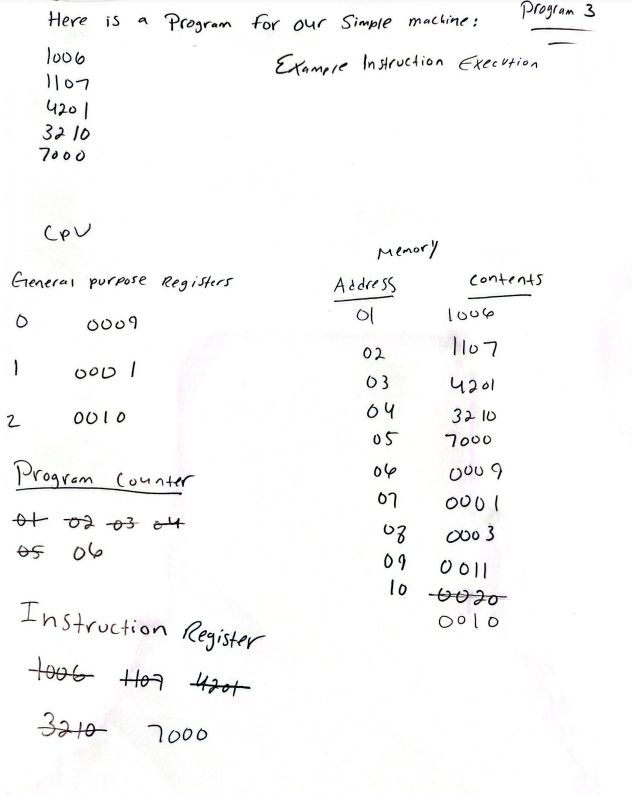 Program 3
Here is a Program for our Simple machine:
Example Instruction Execution
1006
1107
4201
3210
7000
CPU
General purpose Registers
0 0009
1 0001
2 0010
Program Counter
01 02 03 04
05 06
Instruction Register
1006 1107 4201
3210 7000
Memory
Address Contents
01 1006
02 1107
03 4201
04 3210
05 7000
06 0009
07 0001
08 0003
09 0011
10 0020
0010